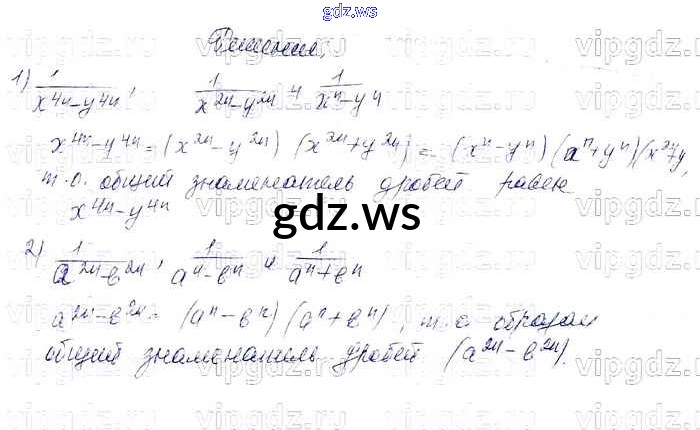 gdz.ws
Решение:
1) 1/(x^4n-y^4n), 1/(x^2n-y^2n) и 1/(x^n-y^n)
x^4n-y^4n=(x^2n-y^2n)(x^2n+y^2n)=(x^n-y^n)(x^n+y^n)(x^2n+y
т.о. общий знаменатель дробей равен
x^4n-y^4n
gdz.ws
2) 1/(a^2n-b^2n), 1/(a^n-b^n) и 1/(a^n+b^n)
a^2n-b^2n=(a^n-b^n)(a^n+b^n), т.о. образом
общий знаменатель дробей (a^2n-b^2n).